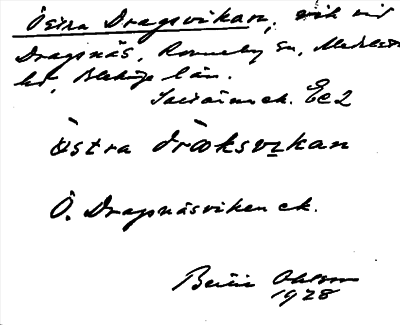 Östra Dragsvikan, vik vid
Dragsnäs, Ronneby sn, Medelsta
hd, Blekinge län.
Ec2
Östra dra̅ksvɪkan
Ö. Dragsnäsviken ek.
Bertil Ohlsson
1928